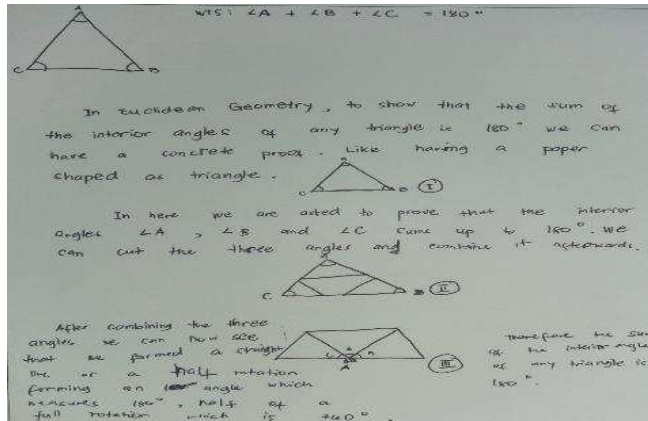 A
WTS: ∠A + ∠B + ∠C = 180°
C B
In Euclidean Geometry, to show that the sum of
the interior angles of any triangle is 180° we can
have a concrete proof. Like having a paper
shaped as triangle.
A
C B I
In here we are asked to prove that the interior
angles ∠A, ∠B and ∠C sums up to 180°. We
can cut the three angles and combine it afterwards.
A
C B II
After combining the three
angles we can now see
that we formed a straight
line or a half rotation
forming an angle which
measures 180°, half of a
full rotation which is
C B
A
III
Therefore the sum
of the interior angles
of any triangle is
180°.